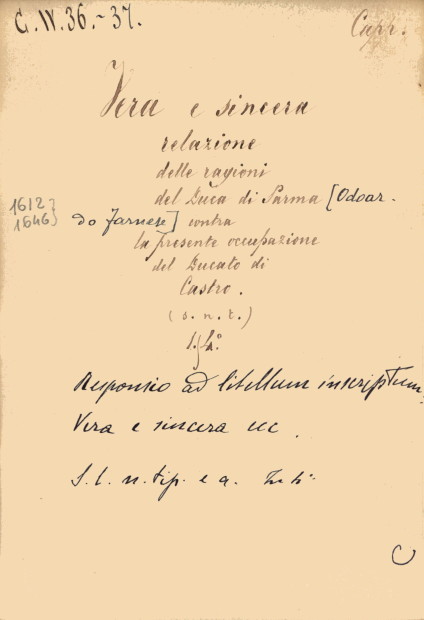 C. W. 36.-37.
Capr.
Vera e sincera
relazione
delle ragioni
del Duca di Parma [Odoar-
1612
1646
do Farnese] contro
la presente occupazione
del Ducato di
Castro.
(s. n. t.)
Responsio ad libellum inscriptum:
Vera e sincera ecc.
S. l. n. tip. e a.
C